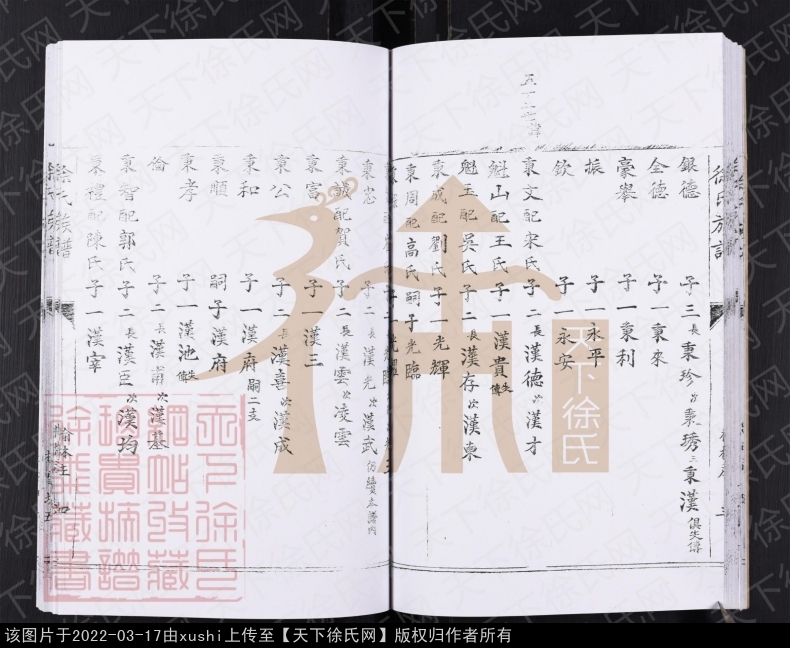 徐氏族譜
銀德 子三長秉珍次秉琇三秉漢俱失傳
全德 子一秉來
豪舉 子一秉利
振 子永平
欽 子一永安
秉文配宋氏子二長漢德次漢才
魁山配王氏子一漢貴失傳
魁玉配吳氏子二長漢存次漢柬
秉成配劉氏子一光輝
秉周配高氏嗣子光臨
子二光耀
秉忠 子二長漢光次漢武
秉誠配賀氏子二長漢雲次凌雲
秉富 子一漢三
秉公 子二長漢喜次漢成
秉和 子一漢府嗣二支
秉順 嗣子漢府
秉孝 子一漢池失傳
倫 子二長漢甫次漢基
秉智配郭氏子二長漢臣次漢均
秉禮配陳氏子一漢宰
徐氏族譜
天下徐氏
天下徐氏网
该图片于2022-03-17由xushi上传至【天下徐氏网】版权归作者所有